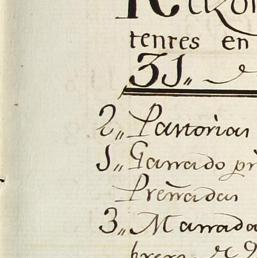 tentes en
31,,
2,, Pastorias
1,, Ganado pri
Preñadas
3,, Manada